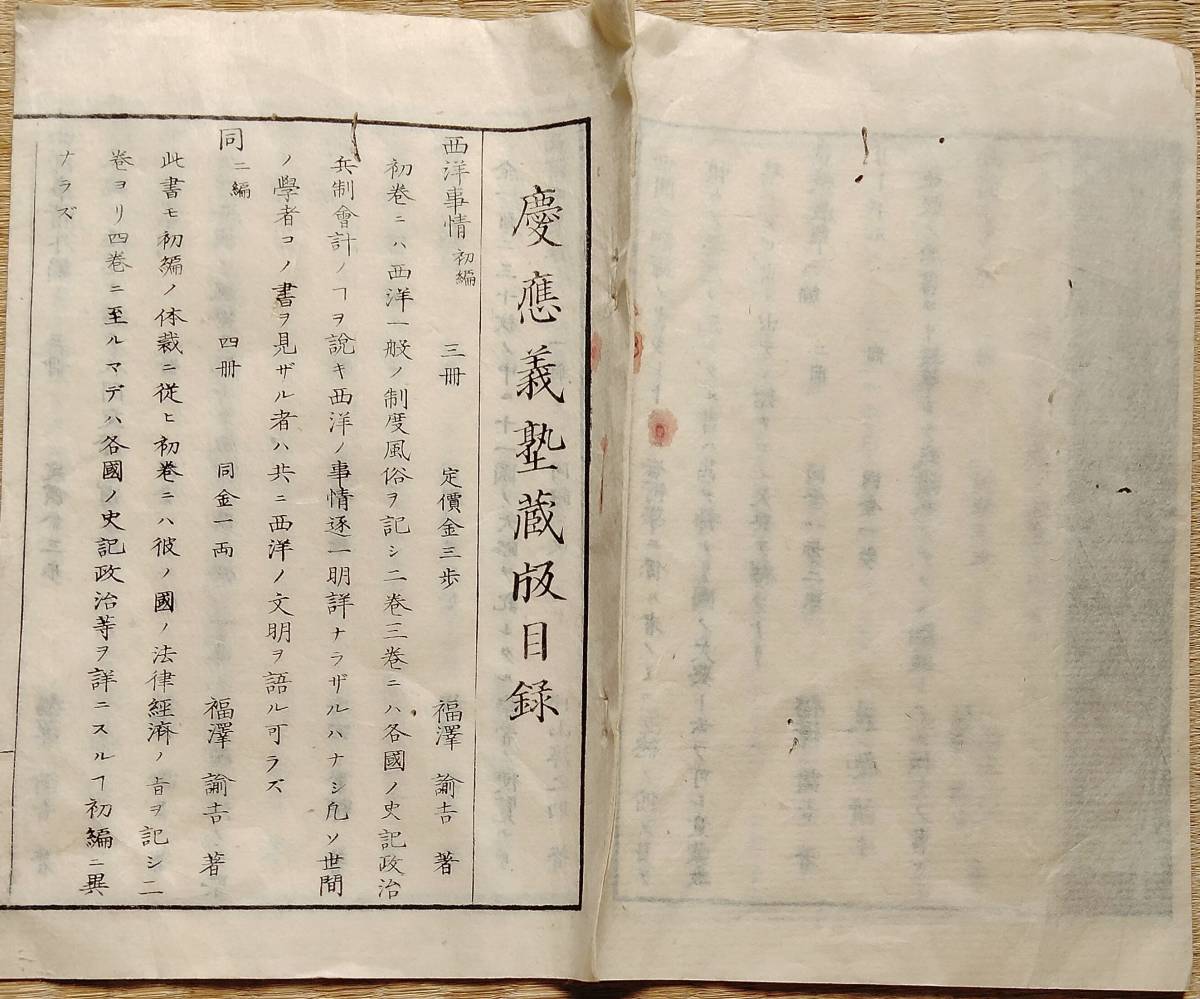 慶應義塾蔵版目録
西洋事情 初編 三冊 定價金三歩 福澤諭吉 著
初卷ニハ西洋一般ノ制度風俗ヲ記シ二卷三卷ニハ各國ノ史記政治
兵制會計ノヿヲ說キ西洋ノ事情逐一明詳ナラザルハナシ凢ソ世間
ノ學者コノ書ヲ見ザル者ハ共ニ西洋ノ文明ヲ語ル可ラズ
同 二編 四冊 同金一両 福澤諭吉 著
此書モ初編ノ体裁ニ從ヒ初卷ニハ彼ノ國ノ法律經濟ノ旨ヲ記シ二
卷ヨリ四卷ニ至ルマデハ各國ノ史記政治等ヲ詳ニスルヿ初編ニ異
ナラズ